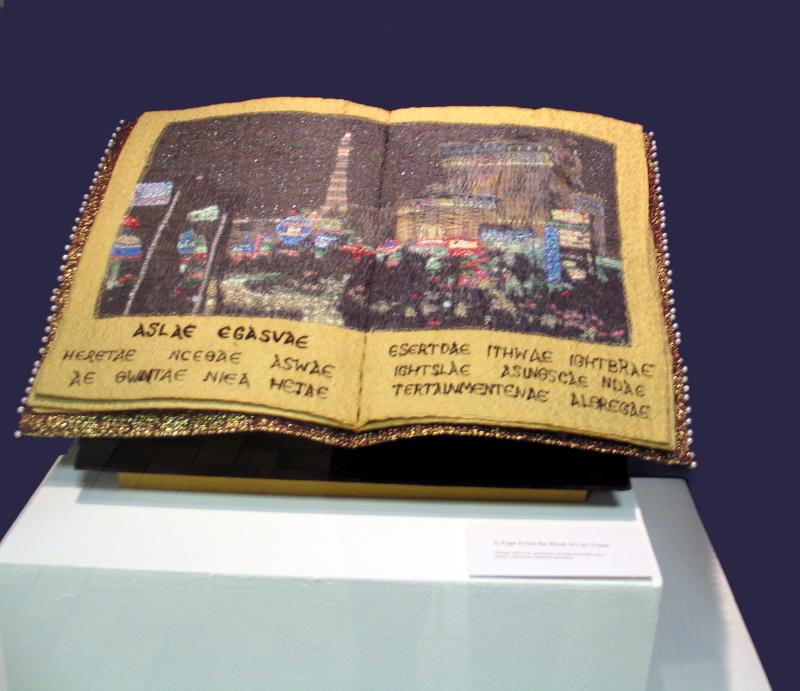 ASLAE EGASVAE
HERETAE NCEOAE ASWAE
AE OWNTAE NIEA HETAE
ESERTDAE ITHWAE IGHTBRAE
IGHTSLAE ASINOSCAE NDAE
TERTAINMENTENAE ALOREGAE
A Page From the Book of Las Vegas